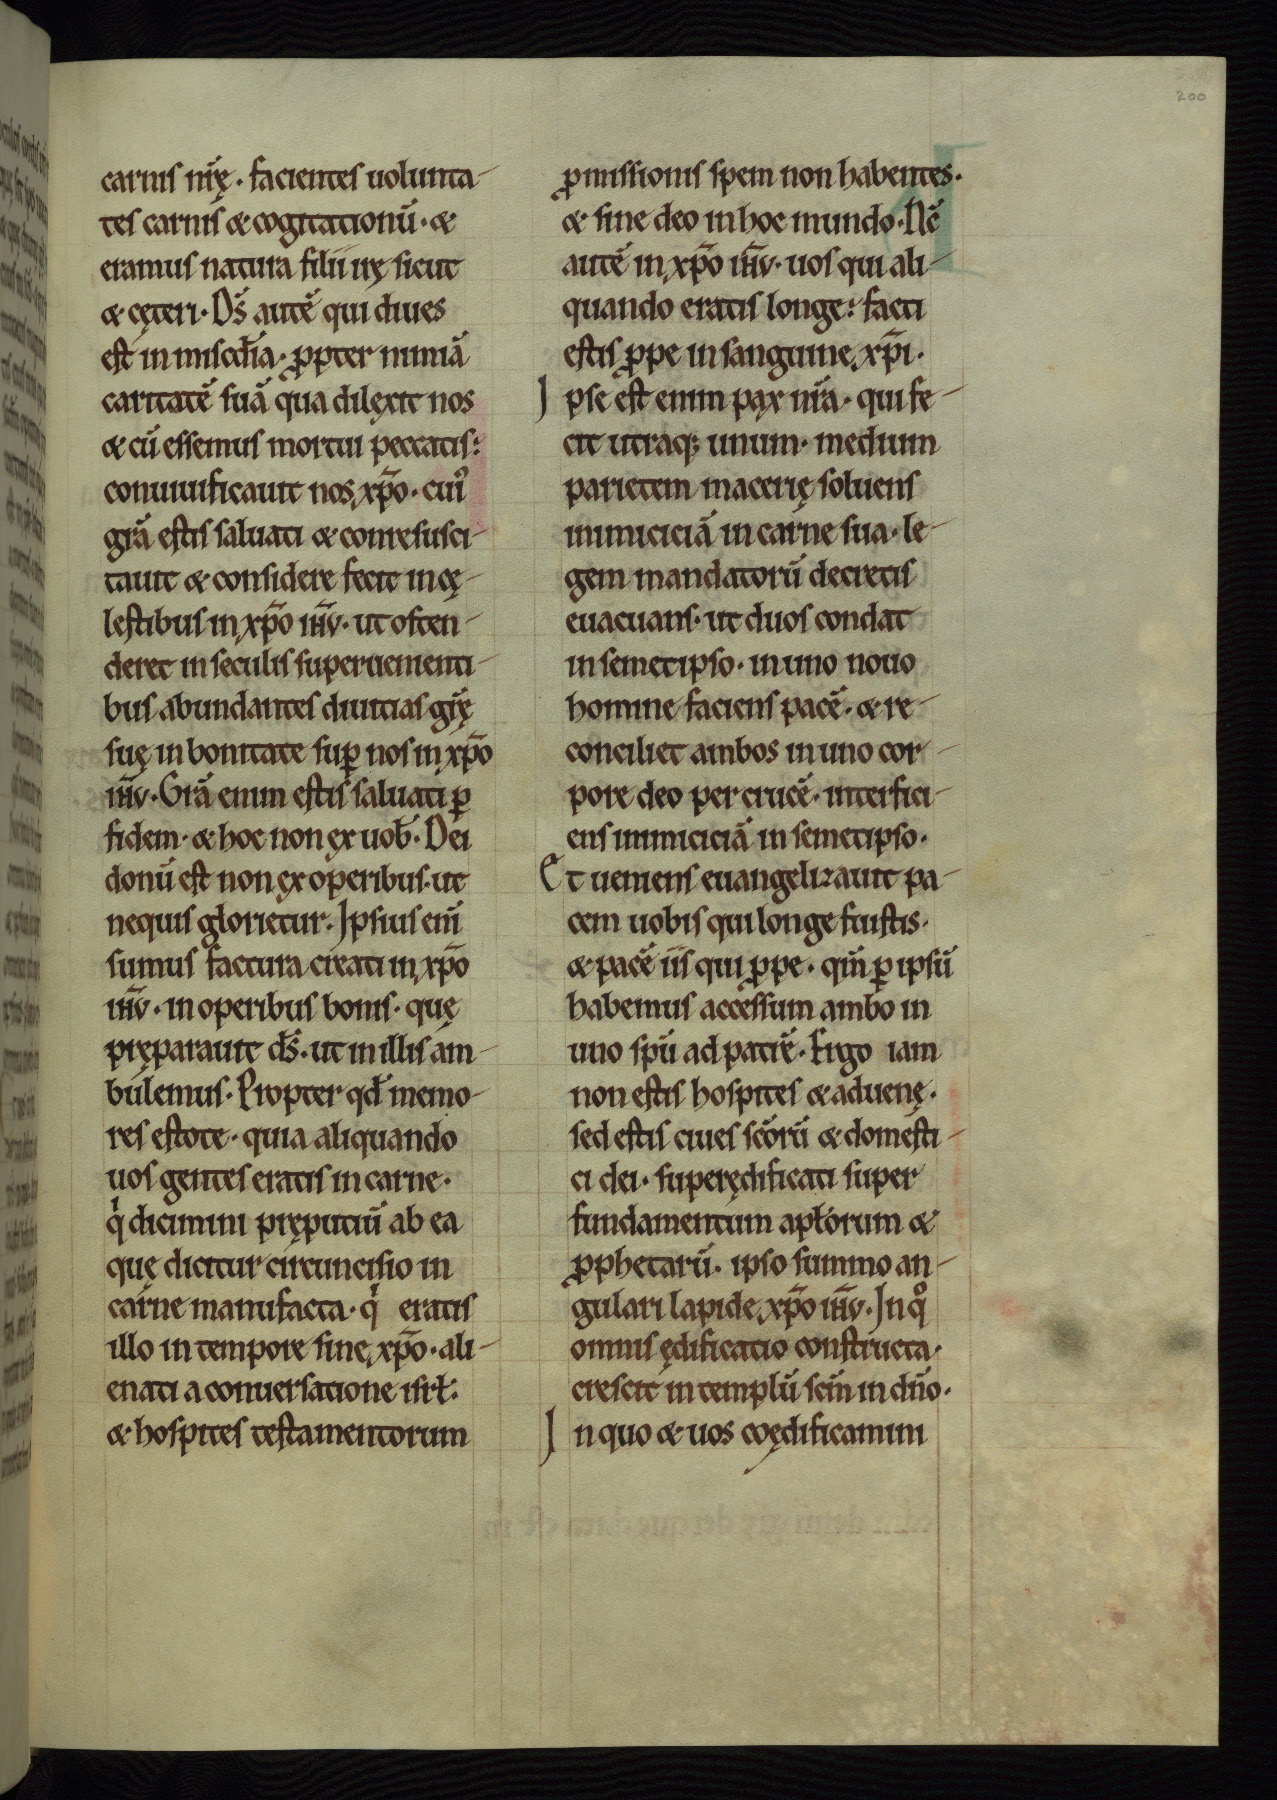 200
carnis nr̄ę · facientes uolunta-
tes carnis & cogitationū · &
eramus natura filii irę sicut
& cęteri · Ds̄ autē qui diues
est in misc̄dia · ꝓpter nimiā
caritatē suā qua dilexit nos
& cū essemus mortui peccatis:
conuiuificauit nos xp̄o · cuiꝰ
gr̄a estis saluati & conresusci-
tauit & considere fecit in cę-
lestibus in xp̄o ih̄u · ut osten-
deret in seculis superuenienti-
bus abundantes diuitias gr̄ę
suę in bonitate suꝑ nos in xp̄o
ih̄u · Gr̄a enim estis saluati ꝑ
fidem · & hoc non ex uob̄ · Dei
donū est non ex operibus · ut
nequis glorietur · Ipsius eni̅
sumus factura creati in xp̄o
ih̄u · in operibus bonis · quę
pręparauit ds̄ · ut in illis am-
bulemus · Propter qd̄ memo-
res estote · quia aliquando
uos gentes eratis in carne ·
qͥ dicimini pręputiū ab ea
quę dicitur circuncisio in
carne manufacta · qͥ eratis
illo in tempore sine xp̄o · ali-
enati a conuersatione isrł:
& hospites testamentorum
ꝓmissionis spem non habentes ·
& sine deo in hoc mundo · Nc̄
autē in xp̄o ih̄u · uos qui ali-
quando eratis longe: facti
estis ꝓpe in sanguine xp̄i ·
Ipse est enim pax nr̄a · qui fe-
cit utraq; unum · medium
parietem macerię soluens
inimiciciā in carne sua · le-
gem mandatorū decretis
euacuans · ut duos condat
in semetipso · in uno nouo
homine faciens pacē · & re-
conciliet ambos in uno cor-
pore deo per crucē · interfici-
ens inimiciciā in semetipso ·
Et ueniens euangelizauit pa-
cem uobis qui longe fuistis ·
& pacē iis qui ꝓpe · qm̄ ꝑ ipsū
habemus accessum ambo in
uno sp̄u ad patrē · Ergo iam
non estis hospites & aduenę ·
sed estis ciues sc̄orū & domesti-
ci dei · superędificati super
fundamentum apłorum &
ꝓphetarū · ipso summo an-
gulari lapide xp̄o ih̄u · In qͦ
omnis ędificatio constructa ·
crescit in templū sc̄m in dn̄o ·
In quo & uos coędificamini